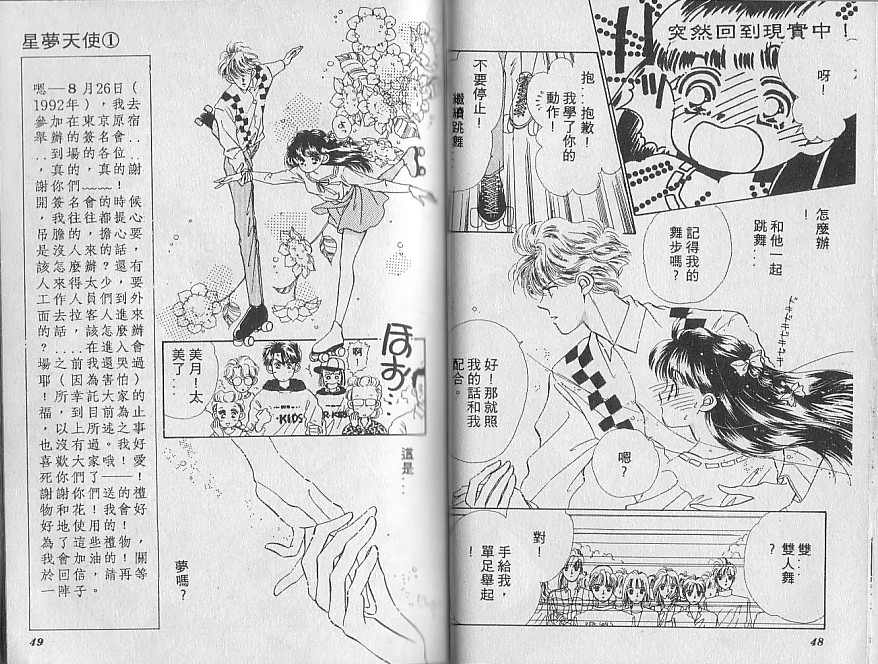 突然回到現實中！
呀！
抱…抱歉！
我學了你的
動作！
不要停止！
繼續跳舞
怎麼辦
！
和他一起
跳舞…
記得我的
舞步嗎？
ドキドキドキドキ
好！那就照
我的話和我
配合。
嗯？
雙…
雙人舞
？
對！
手給我，
單足舉起
48
星夢天使①
嗯—8月26日（
1992年），我去
參加在東京原宿
舉辦的簽名會‥
‥到場的各位‥
，真的，真的謝
謝你們~~~！
開簽名會的時候
，我往往都提心
吊膽的，擔心要
是沒人來的話，
該怎麼辦？還有
人來得太少，要
工作人員們到外
面去拉客人進來
的話，該怎麼辦
？‥‥在進入會
場之前我還哭過
耶！（因為害怕）
！所幸託大家的
福，到目前為止
，以上所述之事
也沒有過。我好
喜歡大家哦！愛
死你們了——！
謝謝你們送的禮
物和花！我會好
好地使用的！
為了這些禮物，
我會加油的！關
於回信，請再等
一陣子。
啊！
美月！太
美了…
KIDS
R-KIDS
ほお…
這是…
夢嗎？
49